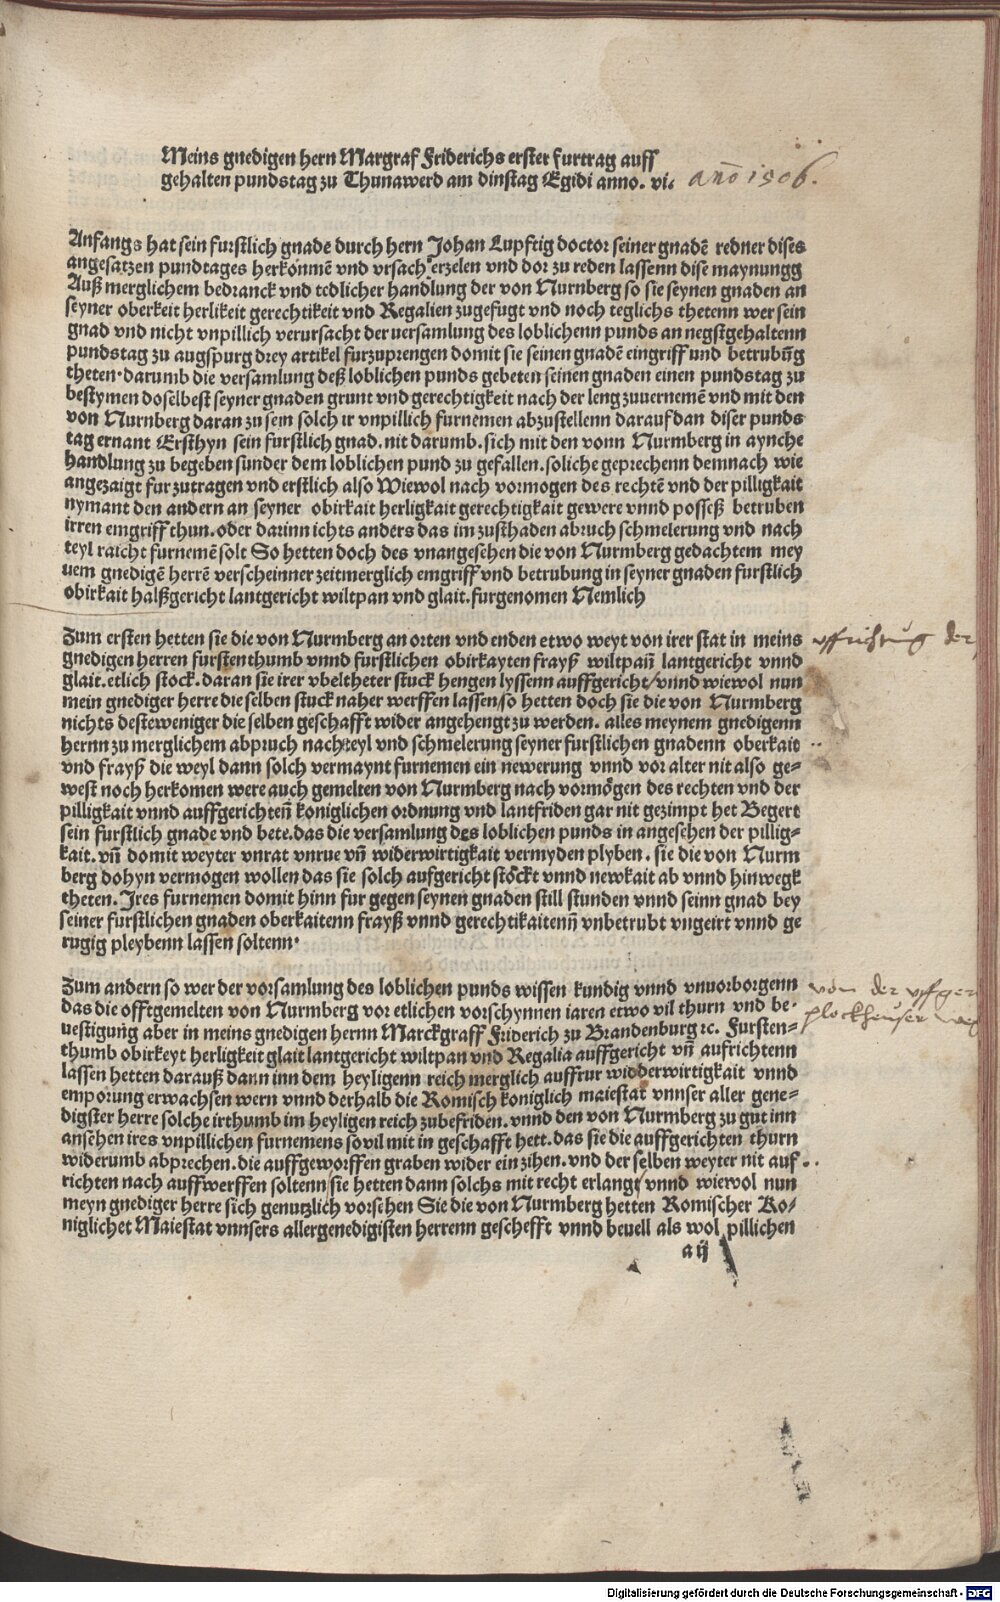 Meins gnedigen hern Margraf Friderichs erster furtrag auff
gehalten pundstag zu Thunawerd am dinstag Egidi anno. vi. año 1506.
Anfangs hat sein furstlich gnade durch hern Johan Lupftig doctor seiner gnadē redner dises
angesatzen pundtages herkōnmē vnd vrsach erzelen vnd dor zu reden lassenn dise maynungg
Auß merglichem bedranck vnd tedlicher handlung der von Nurnberg so sie seynen gnaden an
seyner oberkeit herlikeit gerechtikeit vnd Regalien zugefugt vnd noch teglichs thetenn wer sein
gnad vnd nicht vnpillich verursacht der versamlung des loblichenn punds an negstgehaltenn
pundstag zu augspurg drey artikel furzuprengen domit sie seinen gnadē eingriff und betrubūg
theten·darumb die versamlung deß loblichen punds gebeten seinen gnaden einen pundstag zu
bestymen doselbest seyner gnaden grunt vnd gerechtigkeit nach der leng zuuernemē vnd mit den
von Nurnberg daran zu sein solch ir vnpillich furnemen abzustellenn darauf dan diser punds
tag ernant Ersthyn sein furstlich gnad. nit darumb. sich mit den vonn Nurmberg in aynche
handlung zu begeben sunder dem loblichen pund zu gefallen. soliche geprechenn demnach wie
angezaigt fur zutragen vnd erstlich also Wiewol nach vormogen des rechtē vnd der pilligkait
nymant den andern an seyner obirkait herligkait gerechtigkait gewere vnnd posseß betruben
irren eingriff thun. oder darinn ichts anders das im zusthaden abruch schmelerung vnd nach
teyl raicht furnemē solt So hetten doch des vnangesehen die von Nurmberg gedachtem mey
nem gnedigē herrē verscheinner zeit merglich eingriff vnd betrubung in seyner gnaden furstlich
obirkait halßgericht lantgericht wiltpan vnd glait. furgenomen Nemlich
Zum ersten hetten sie die von Nurmberg an orten vnd enden etwo weyt von irer stat in meins
vffrichtūg der
gnedigen herren furstenthumb vnnd furstlichen obirkayten frayß wiltpañ lantgericht vnnd
glait. etlich stock. daran sie irer vbeltheter stuck hengen lyssenn auffgericht/vnnd wiewol nun
mein gnediger herre die selben stuck naher werffen lassen/so hetten doch sie die von Nurmberg
nichts desteweniger die selben geschafft wider angehengt zu werden. alles meynem gnedigenn
hernn zu merglichem abpruch nachteyl vnd schmelerung seyner furstlichen gnadenn oberkait
vnd frayß die weyl dann solch vermaynt furnemen ein newerung vnnd vor alter nit also ge-
west noch herkomen were auch gemelten von Nurmberg nach vormögen des rechten vnd der
pilligkait vnnd auffgerichteñ koniglichen ordnung vnd lantfriden gar nit gezimpt het Begert
sein furstlich gnade vnd bete. das die versamlung des loblichen punds in angesehen der pillig-
kait. vñ domit weyter vnrat vnrue vñ widerwirtigkait vermyden plyben. sie die von Nurm
berg dohyn vermogen wollen das sie solch aufgericht stöckt vnnd newkait ab vnnd hinwegk
theten. Ires furnemen domit hinn fur gegen seynen gnaden still stunden vnnd seinn gnad bey
seiner furstlichen gnaden oberkaitenn frayß vnnd gerechtikaitenñ vnbetrubt vngeirt vnnd ge
rugig pleybenn lassen soltenn·
Zum andern so wer der vorsamlung des loblichen punds wissen kundig vnnd vnuorborgenn
von der vffger
das die offtgemelten von Nurmberg vor etlichen vorschynnen iaren etwo vil thurn vnd be-
plockheuser
uestigung aber in meins gnedigen hernn Marckgraff Friderich zu Brandenburg ꝛc. Fursten-
thumb obirkeyt herligkeit glait lantgericht wiltpan vnd Regalia auffgericht vñ aufrichtenn
lassen hetten darauß dann inn dem heyligenn reich merglich auffrur widderwirtigkait vnnd
emporung erwachsen wern vnnd derhalb die Romisch koniglich maiestat vnnser aller gene-
digster herre solche irthumb im heyligen reich zubefriden. vnnd den von Nurmberg zu gut inn
ansehen ires vnpillichen furnemens so vil mit in geschafft hett. das sie die auffgerichten thurn
widerumb abprechen. die auffgeworffen graben wider ein zihen. vnd der selben weyter nit auf-
richten nach auffwerffen soltenn sie hetten dann solchs mit recht erlangt vnnd wiewol nun
meyn gnediger herre sich genutzlich vorsehen Sie die von Nurmberg hetten Romischer Ko-
niglichet Maiestat vnnsers allergenedigisten herrenn geschefft vnnd beuell als wol pillichen
a ij
Digitalisierung gefördert durch die Deutsche Forschungsgemeinschaft - DFG